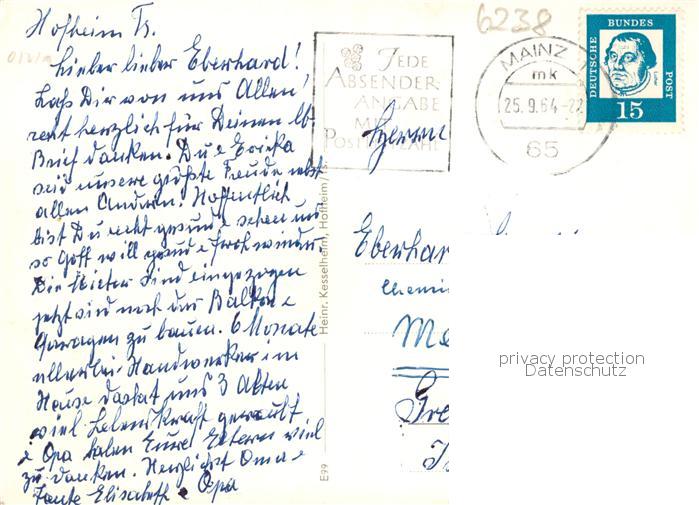 6238
Hofheim Ts.
Lieber lieber Eberhard!
Laß Dir von uns Allen
recht herzlich für Deinen lb
Brief danken. Du e Erika
seid unsere größte Freude nebst
allen Andern. Hoffentlich
bist Du recht gesund e sehen uns
so Gott will gesund e froh wieder.
Die Mieter sind eingezogen
jetzt sind noch die Balkon e
Garagen zu bauen. 6 Monate
allerlei Handwerker im
Hause das hat uns 3 Alten
viel Lebenskraft geraubt
e Opa haben Eure Eltern viel
zu danken. Herzlichst Oma e
Tante Elisabeth e Opa
Heinr. Kesselheim, Hofheim/Ts.
E99
JEDE
ABSENDER-
ANGABE
MIT
POSTLEITZAHL
MAINZ 1
mk
25.9.64-22
65
DEUTSCHE
BUNDES
POST
15
Herrn
Eberhar
Chemi
privacy protection
Datenschutz